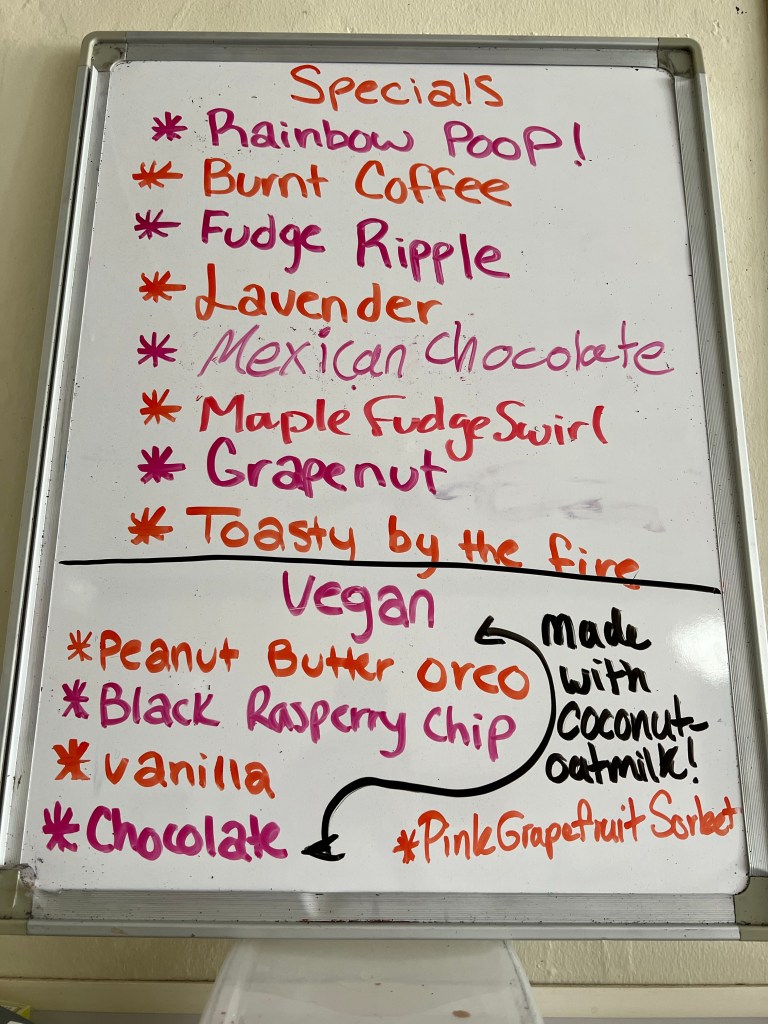 Specials
* Rainbow Poop!
* Burnt Coffee
* Fudge Ripple
* Lavender
* Mexican Chocolate
* Maple Fudge Swirl
* Grapenut
* Toasty by the fire
Vegan
* Peanut Butter oreo
* Black Rasperry Chip
* vanilla
* Chocolate
made
with
coconut-
oatmilk!
* Pink Grapefruit Sorbet